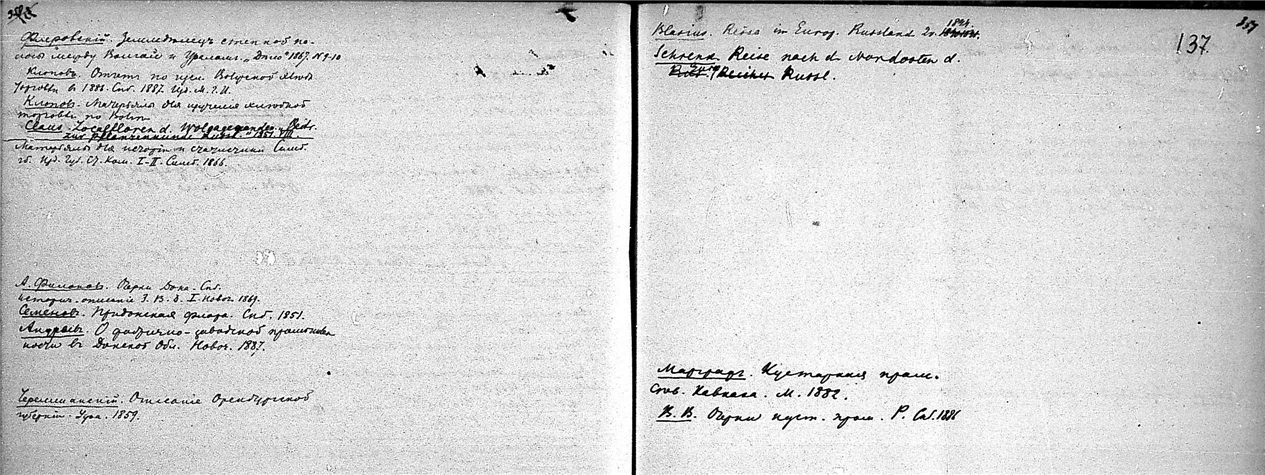 Флеровскій. Земледѣлецъ степной по-
лосы между Волгой и Ураломъ. „Дѣло" 1867. №9-10
Клоповъ. Отчетъ по изсл. Волжской хлѣбн.
торговли въ 1886. Спб. 1887. Изд. М. Г. И.
Клоповъ. Матерьялы для изученія хлѣбной
торговли по Волгѣ
Claus. Localfloren d. Wolgagegenden. Beitr.
zur Pflanzenkunde d. Russ. 1851. VIII
Матерьялы для исторіи и статистики Симб.
гб. Изд. Губ. Ст. Ком. I-II. Симб. 1866.
А. Филоновъ. Очерки Дона. Спб.
историч. описаніе З. В. Д. I. Новоч. 1869.
Семеновъ. Придонская флора. Спб. 1851.
Андреевъ. О фабрично-заводской промышлен
ности въ Донской Обл. Новоч. 1887.
Черемшанскій. Описаніе Оренбургской
губерніи. Уфа. 1859.
Blasius. Reise in Europ. Russland 1844
137
Schrenk. Reise nach d. Nordosten d.
Europ. Russl.
Маргграфъ. Кустарная пром.
Сѣв. Кавказа. М. 1882.
В. В. Очерки куст. пром. Р. Сп. 1886